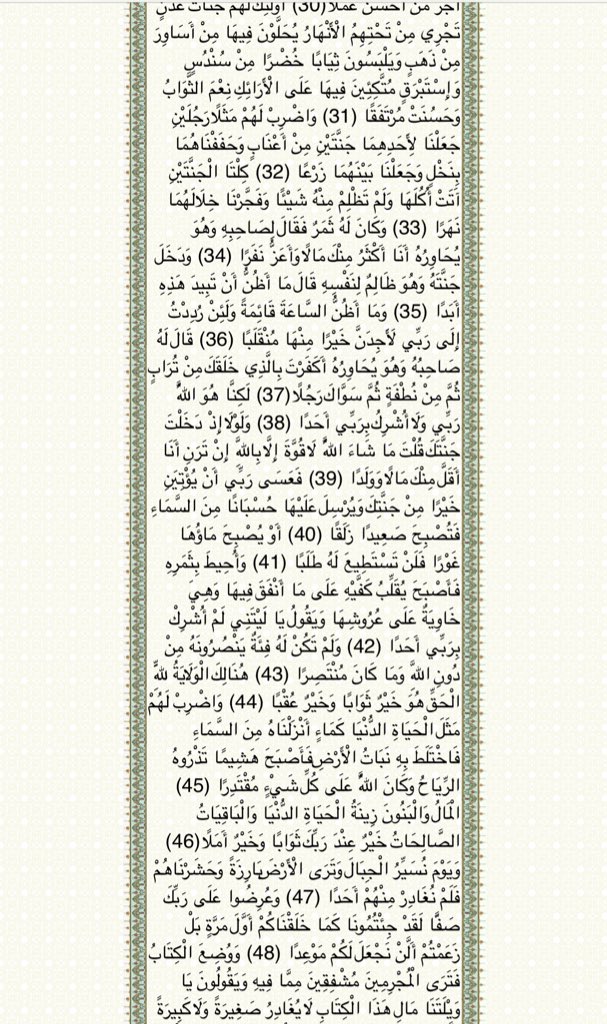 أجر من أحسن عملا (30) أولئك لهم جنات عدن
تَجْرِي مِنْ تَحْتِهِمُ الْأَنْهَارُ يُحَلَّوْنَ فِيهَا مِنْ أَسَاوِرَ
مِنْ ذَهَبٍ وَيَلْبَسُونَ ثِيَابًا خُضْرًا مِنْ سُنْدُسٍ
وَإِسْتَبْرَقٍ مُتَّكِئِينَ فِيهَا عَلَى الْأَرَائِكِ نِعْمَ الثَّوَابُ
وَحَسُنَتْ مُرْتَفَقًا (31) وَاضْرِبْ لَهُمْ مَثَلًا رَجُلَيْنِ
جَعَلْنَا لِأَحَدِهِمَا جَنَّتَيْنِ مِنْ أَعْنَابٍ وَحَفَفْنَاهُمَا
بِنَخْلٍ وَجَعَلْنَا بَيْنَهُمَا زَرْعًا (32) كِلْتَا الْجَنَّتَيْنِ
آَتَتْ أُكُلَهَا وَلَمْ تَظْلِمْ مِنْهُ شَيْئًا وَفَجَّرْنَا خِلَالَهُمَا
نَهَرًا (33) وَكَانَ لَهُ ثَمَرٌ فَقَالَ لِصَاحِبِهِ وَهُوَ
يُحَاوِرُهُ أَنَا أَكْثَرُ مِنْكَ مَالًا وَأَعَزُّ نَفَرًا (34) وَدَخَلَ
جَنَّتَهُ وَهُوَ ظَالِمٌ لِنَفْسِهِ قَالَ مَا أَظُنُّ أَنْ تَبِيدَ هَذِهِ
أَبَدًا (35) وَمَا أَظُنُّ السَّاعَةَ قَائِمَةً وَلَئِنْ رُدِدْتُ
إِلَى رَبِّي لَأَجِدَنَّ خَيْرًا مِنْهَا مُنْقَلَبًا (36) قَالَ لَهُ
صَاحِبُهُ وَهُوَ يُحَاوِرُهُ أَكَفَرْتَ بِالَّذِي خَلَقَكَ مِنْ تُرَابٍ
ثُمَّ مِنْ نُطْفَةٍ ثُمَّ سَوَّاكَ رَجُلًا (37) لَكِنَّا هُوَ اللَّهُ
رَبِّي وَلَا أُشْرِكُ بِرَبِّي أَحَدًا (38) وَلَوْلَا إِذْ دَخَلْتَ
جَنَّتَكَ قُلْتَ مَا شَاءَ اللَّهُ لَا قُوَّةَ إِلَّا بِاللَّهِ إِنْ تَرَنِ أَنَا
أَقَلَّ مِنْكَ مَالًا وَوَلَدًا (39) فَعَسَى رَبِّي أَنْ يُؤْتِيَنِ
خَيْرًا مِنْ جَنَّتِكَ وَيُرْسِلَ عَلَيْهَا حُسْبَانًا مِنَ السَّمَاءِ
فَتُصْبِحَ صَعِيدًا زَلَقًا (40) أَوْ يُصْبِحَ مَاؤُهَا
غَوْرًا فَلَنْ تَسْتَطِيعَ لَهُ طَلَبًا (41) وَأُحِيطَ بِثَمَرِهِ
فَأَصْبَحَ يُقَلِّبُ كَفَّيْهِ عَلَى مَا أَنْفَقَ فِيهَا وَهِيَ
خَاوِيَةٌ عَلَى عُرُوشِهَا وَيَقُولُ يَا لَيْتَنِي لَمْ أُشْرِكْ
بِرَبِّي أَحَدًا (42) وَلَمْ تَكُنْ لَهُ فِئَةٌ يَنْصُرُونَهُ مِنْ
دُونِ اللَّهِ وَمَا كَانَ مُنْتَصِرًا (43) هُنَالِكَ الْوَلَايَةُ لِلَّهِ
الْحَقِّ هُوَ خَيْرٌ ثَوَابًا وَخَيْرٌ عُقْبًا (44) وَاضْرِبْ لَهُمْ
مَثَلَ الْحَيَاةِ الدُّنْيَا كَمَاءٍ أَنْزَلْنَاهُ مِنَ السَّمَاءِ
فَاخْتَلَطَ بِهِ نَبَاتُ الْأَرْضِ فَأَصْبَحَ هَشِيمًا تَذْرُوهُ
الرِّيَاحُ وَكَانَ اللَّهُ عَلَى كُلِّ شَيْءٍ مُقْتَدِرًا (45)
الْمَالُ وَالْبَنُونَ زِينَةُ الْحَيَاةِ الدُّنْيَا وَالْبَاقِيَاتُ
الصَّالِحَاتُ خَيْرٌ عِنْدَ رَبِّكَ ثَوَابًا وَخَيْرٌ أَمَلًا (46)
وَيَوْمَ نُسَيِّرُ الْجِبَالَ وَتَرَى الْأَرْضَ بَارِزَةً وَحَشَرْنَاهُمْ
فَلَمْ نُغَادِرْ مِنْهُمْ أَحَدًا (47) وَعُرِضُوا عَلَى رَبِّكَ
صَفًّا لَقَدْ جِئْتُمُونَا كَمَا خَلَقْنَاكُمْ أَوَّلَ مَرَّةٍ بَلْ
زَعَمْتُمْ أَلَّنْ نَجْعَلَ لَكُمْ مَوْعِدًا (48) وَوُضِعَ الْكِتَابُ
فَتَرَى الْمُجْرِمِينَ مُشْفِقِينَ مِمَّا فِيهِ وَيَقُولُونَ يَا
وَيْلَتَنَا مَالِ هَذَا الْكِتَابِ لَا يُغَادِرُ صَغِيرَةً وَلَا كَبِيرَةً